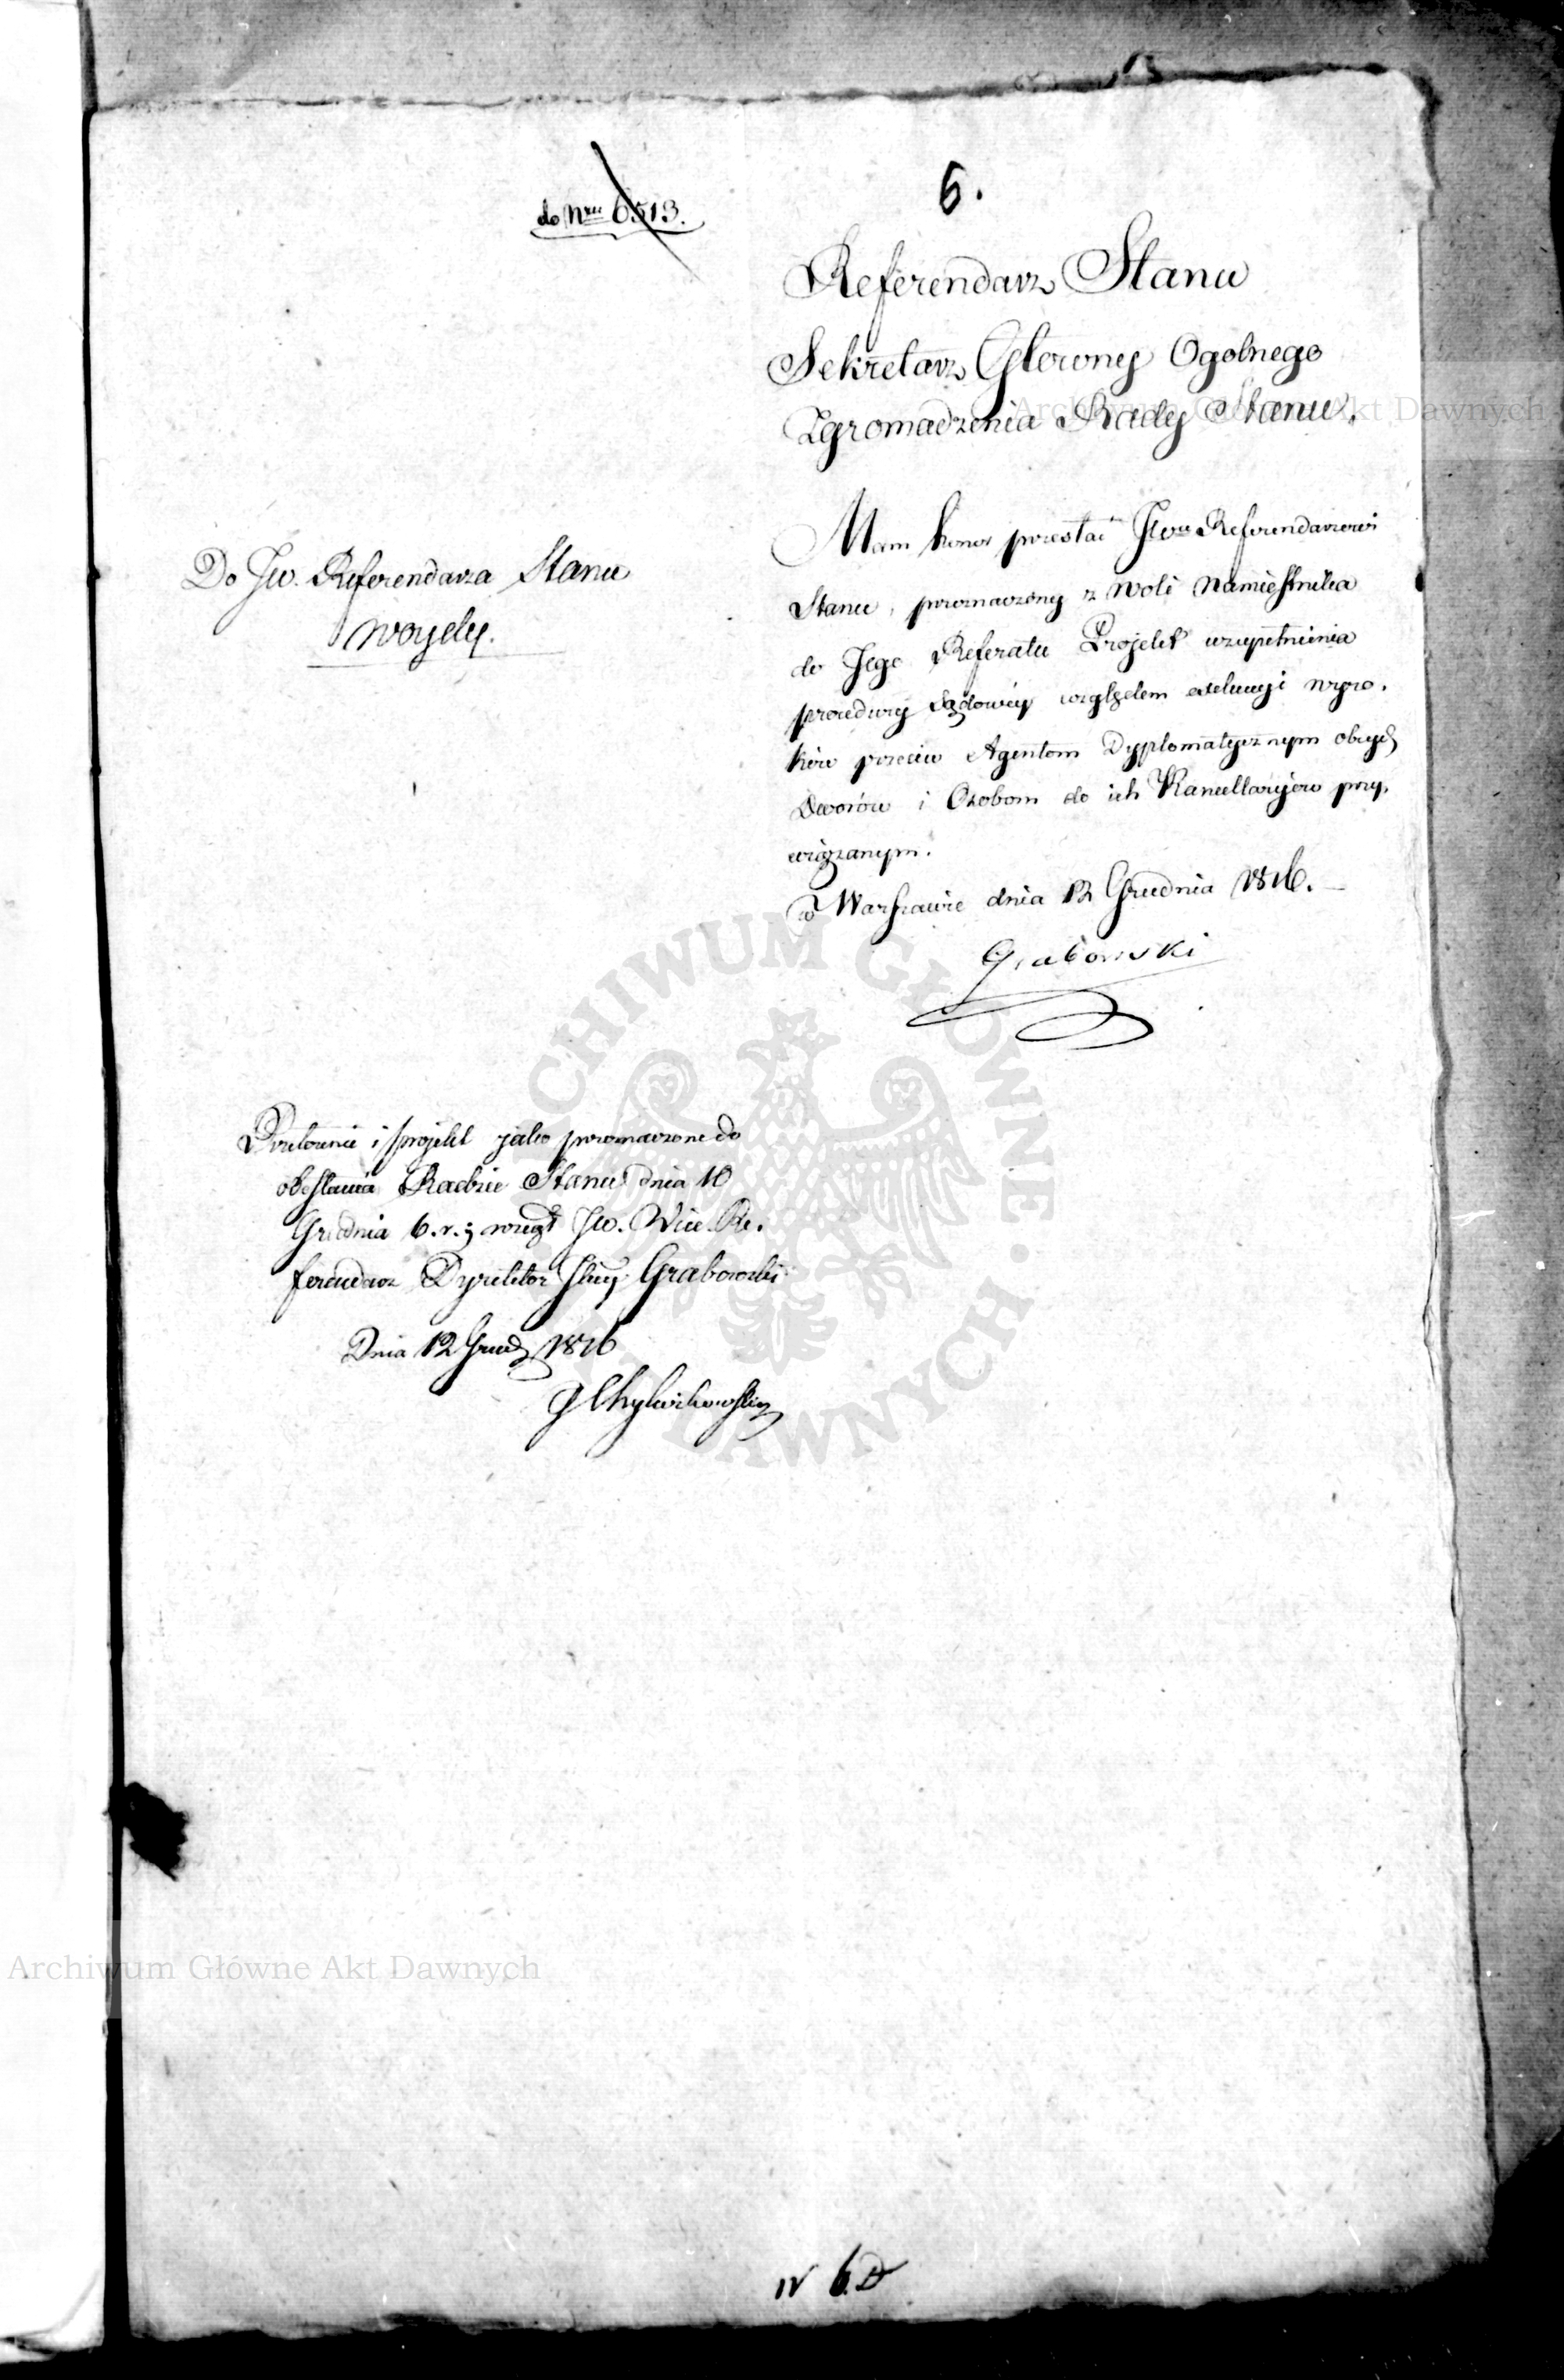 do Nru 6513.
5.
Referendarz Stanu
Sekretarz Główny Ogolnego
Zgromadzenia Rady Stanu.
Do JW. Referendarza Stanu
Woydy.
Mam honor przesłać JWmu Referendarzowi
Stanu, przeznaczony z woli Namiestnika
do Jego Referatu Projekt uzupełnienia
procedury sądowéy względem exekucyi wyro.
ków przeciw Agentom Dyplomatycznym obcych
Dworów i Osobom do ich Kancellaryiow przy.
wiązanym.
w Warszawie dnia 12 Grudnia 1816.
Grabowski
i projekt jako przeznaczone do
odesłania Radzie Stanu dnia 10
Grudnia b. r. wziął JW. Vice Re.
ferendarz Dyrektor Grabowski
Dnia 12 Grud 1816
IV 6.D
Archiwum Główne Akt Dawnych
ARCHIWUM GŁÓWNE AKT DAWNYCH
Archiwum Główne Akt Dawnych